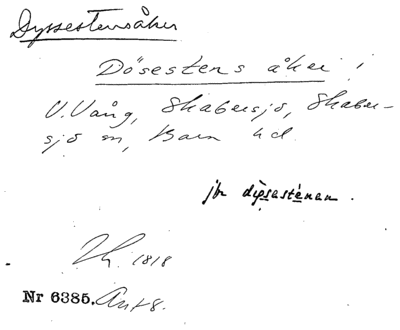 Dyssestensåker
Dösestens åker i
V. Vång, Skabersjö, Skaber-
sjö sn, Bara hd
jfr dipsastenan.
1818
Nr 6385.